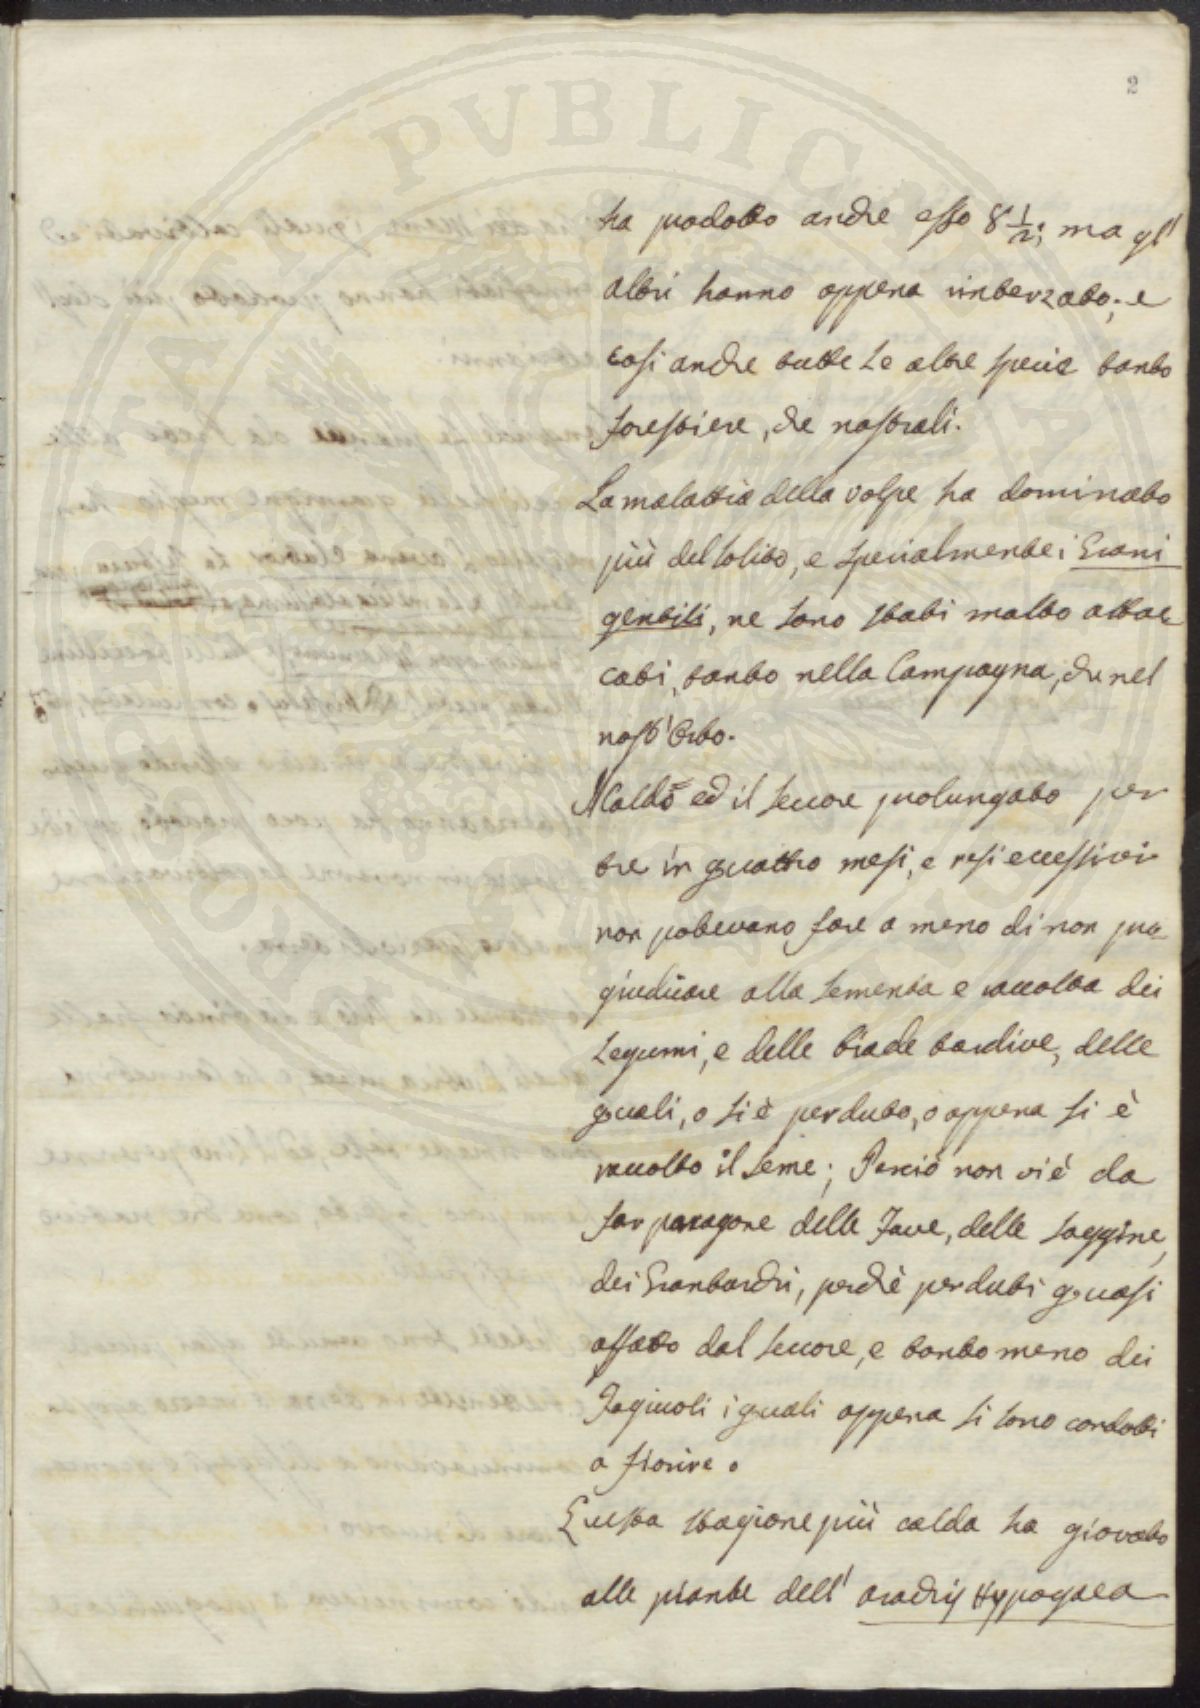 2
ha prodotto anche esso 8 1/2; ma gl'
altri hanno appena rinterzato; e
così anche tutte le altre specie tanto
forestiere, che nostrali.
La malattia della volpe ha dominato
più del solito, e specialmente i Grani
gentili, ne sono stati molto attac-
cati, tanto nella Campagna, che nel
nost' Orto.
Il caldo ed il seccore prolungato per
tre in quattro mesi, e resi eccessivi
non potevano fare a meno di non pre-
giudicare alla sementa e raccolta dei
Legumi, e delle biade tardive, delle
quali, o si è perduto, o appena si è
raccolto il seme; Perciò non vi è da
far paragone delle Fave, delle saggine,
dei Granturchi, perchè perduti quasi
affatto dal seccore, e tanto meno dei
Fagiuoli i quali appena si sono condotti
a fiorire.
Questa stagione più calda ha giovato
alle piante dell' arachis Hypogaea